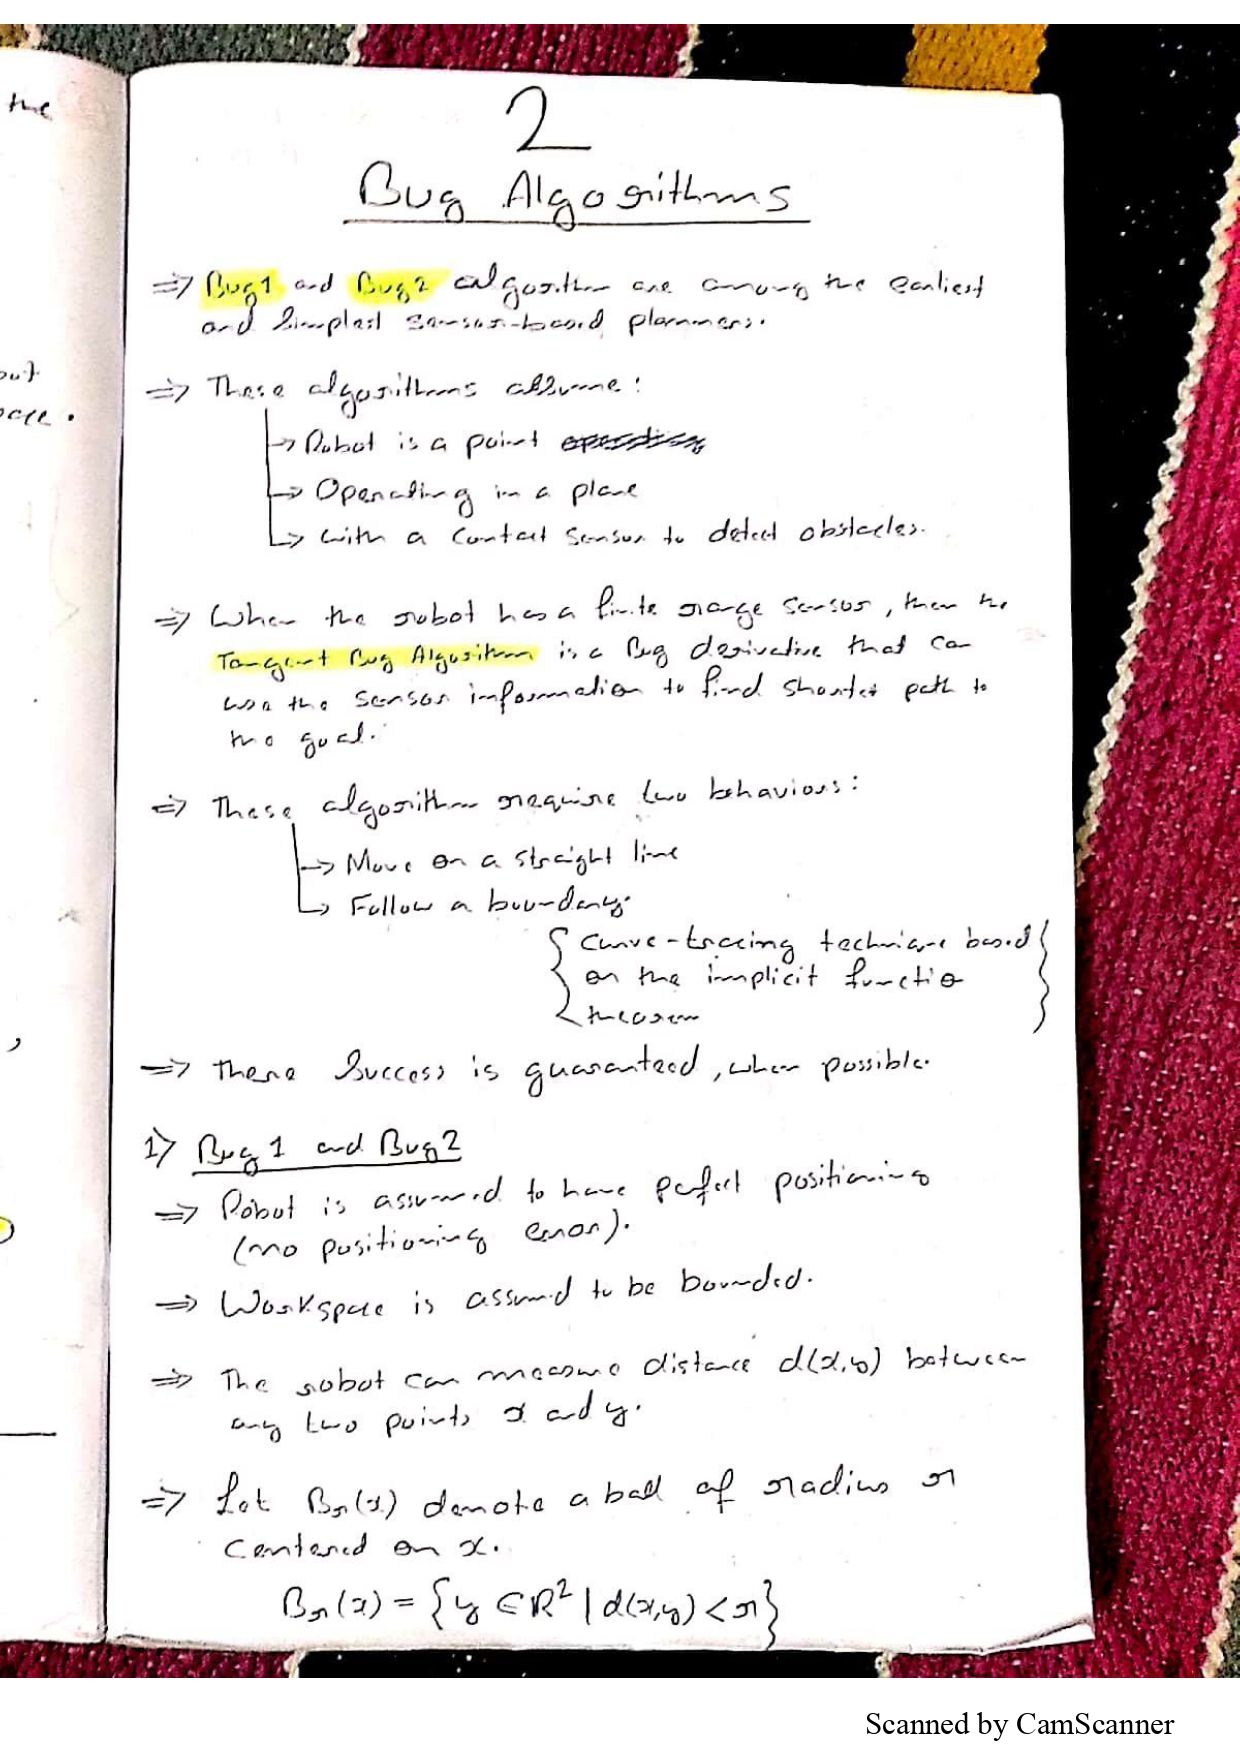 the
2
Bug Algorithms
⇒ Bug1 and Bug2 algorithm are among the earliest
and simplest sensor-based planners.
out
⇒ These algorithms assume:
→ Robot is a point
→ Operating in a plane
→ with a contact sensor to detect obstacles.
⇒ When the robot has a finite range sensor, then the
Tangent Bug Algorithm is a Bug derivative that can
use the sensor information to find shorter path to
the goal.
⇒ These algorithm require two behaviours:
→ Move on a straight line
→ Follow a boundary.
{ Curve-tracing technique based }
on the implicit function
theorem
⇒ There success is guaranteed, when possible.
1) Bug1 and Bug2
⇒ Robot is assumed to have perfect positioning
(no positioning error).
⇒ Workspace is assumed to be bounded.
⇒ The robot can measure distance d(x,y) between
any two points x and y.
⇒ Let Br(x) denote a ball of radius r
centered on x.
Br(x) = {y ∈ R² | d(x,y) < r}
Scanned by CamScanner